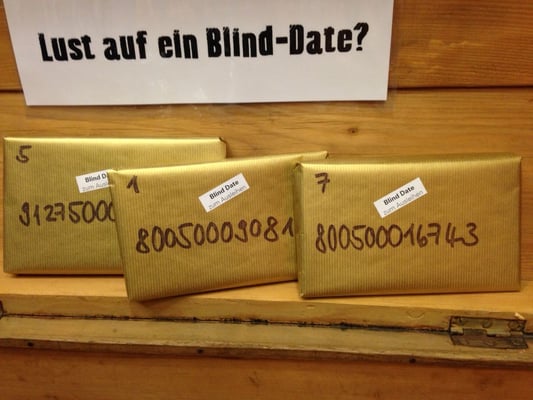 Lust auf ein Blind-Date?
5
Blind Date
zum Ausleihen
91275000
1
Blind Date
zum Ausleihen
80050009081
7
Blind Date
zum Ausleihen
800500016743